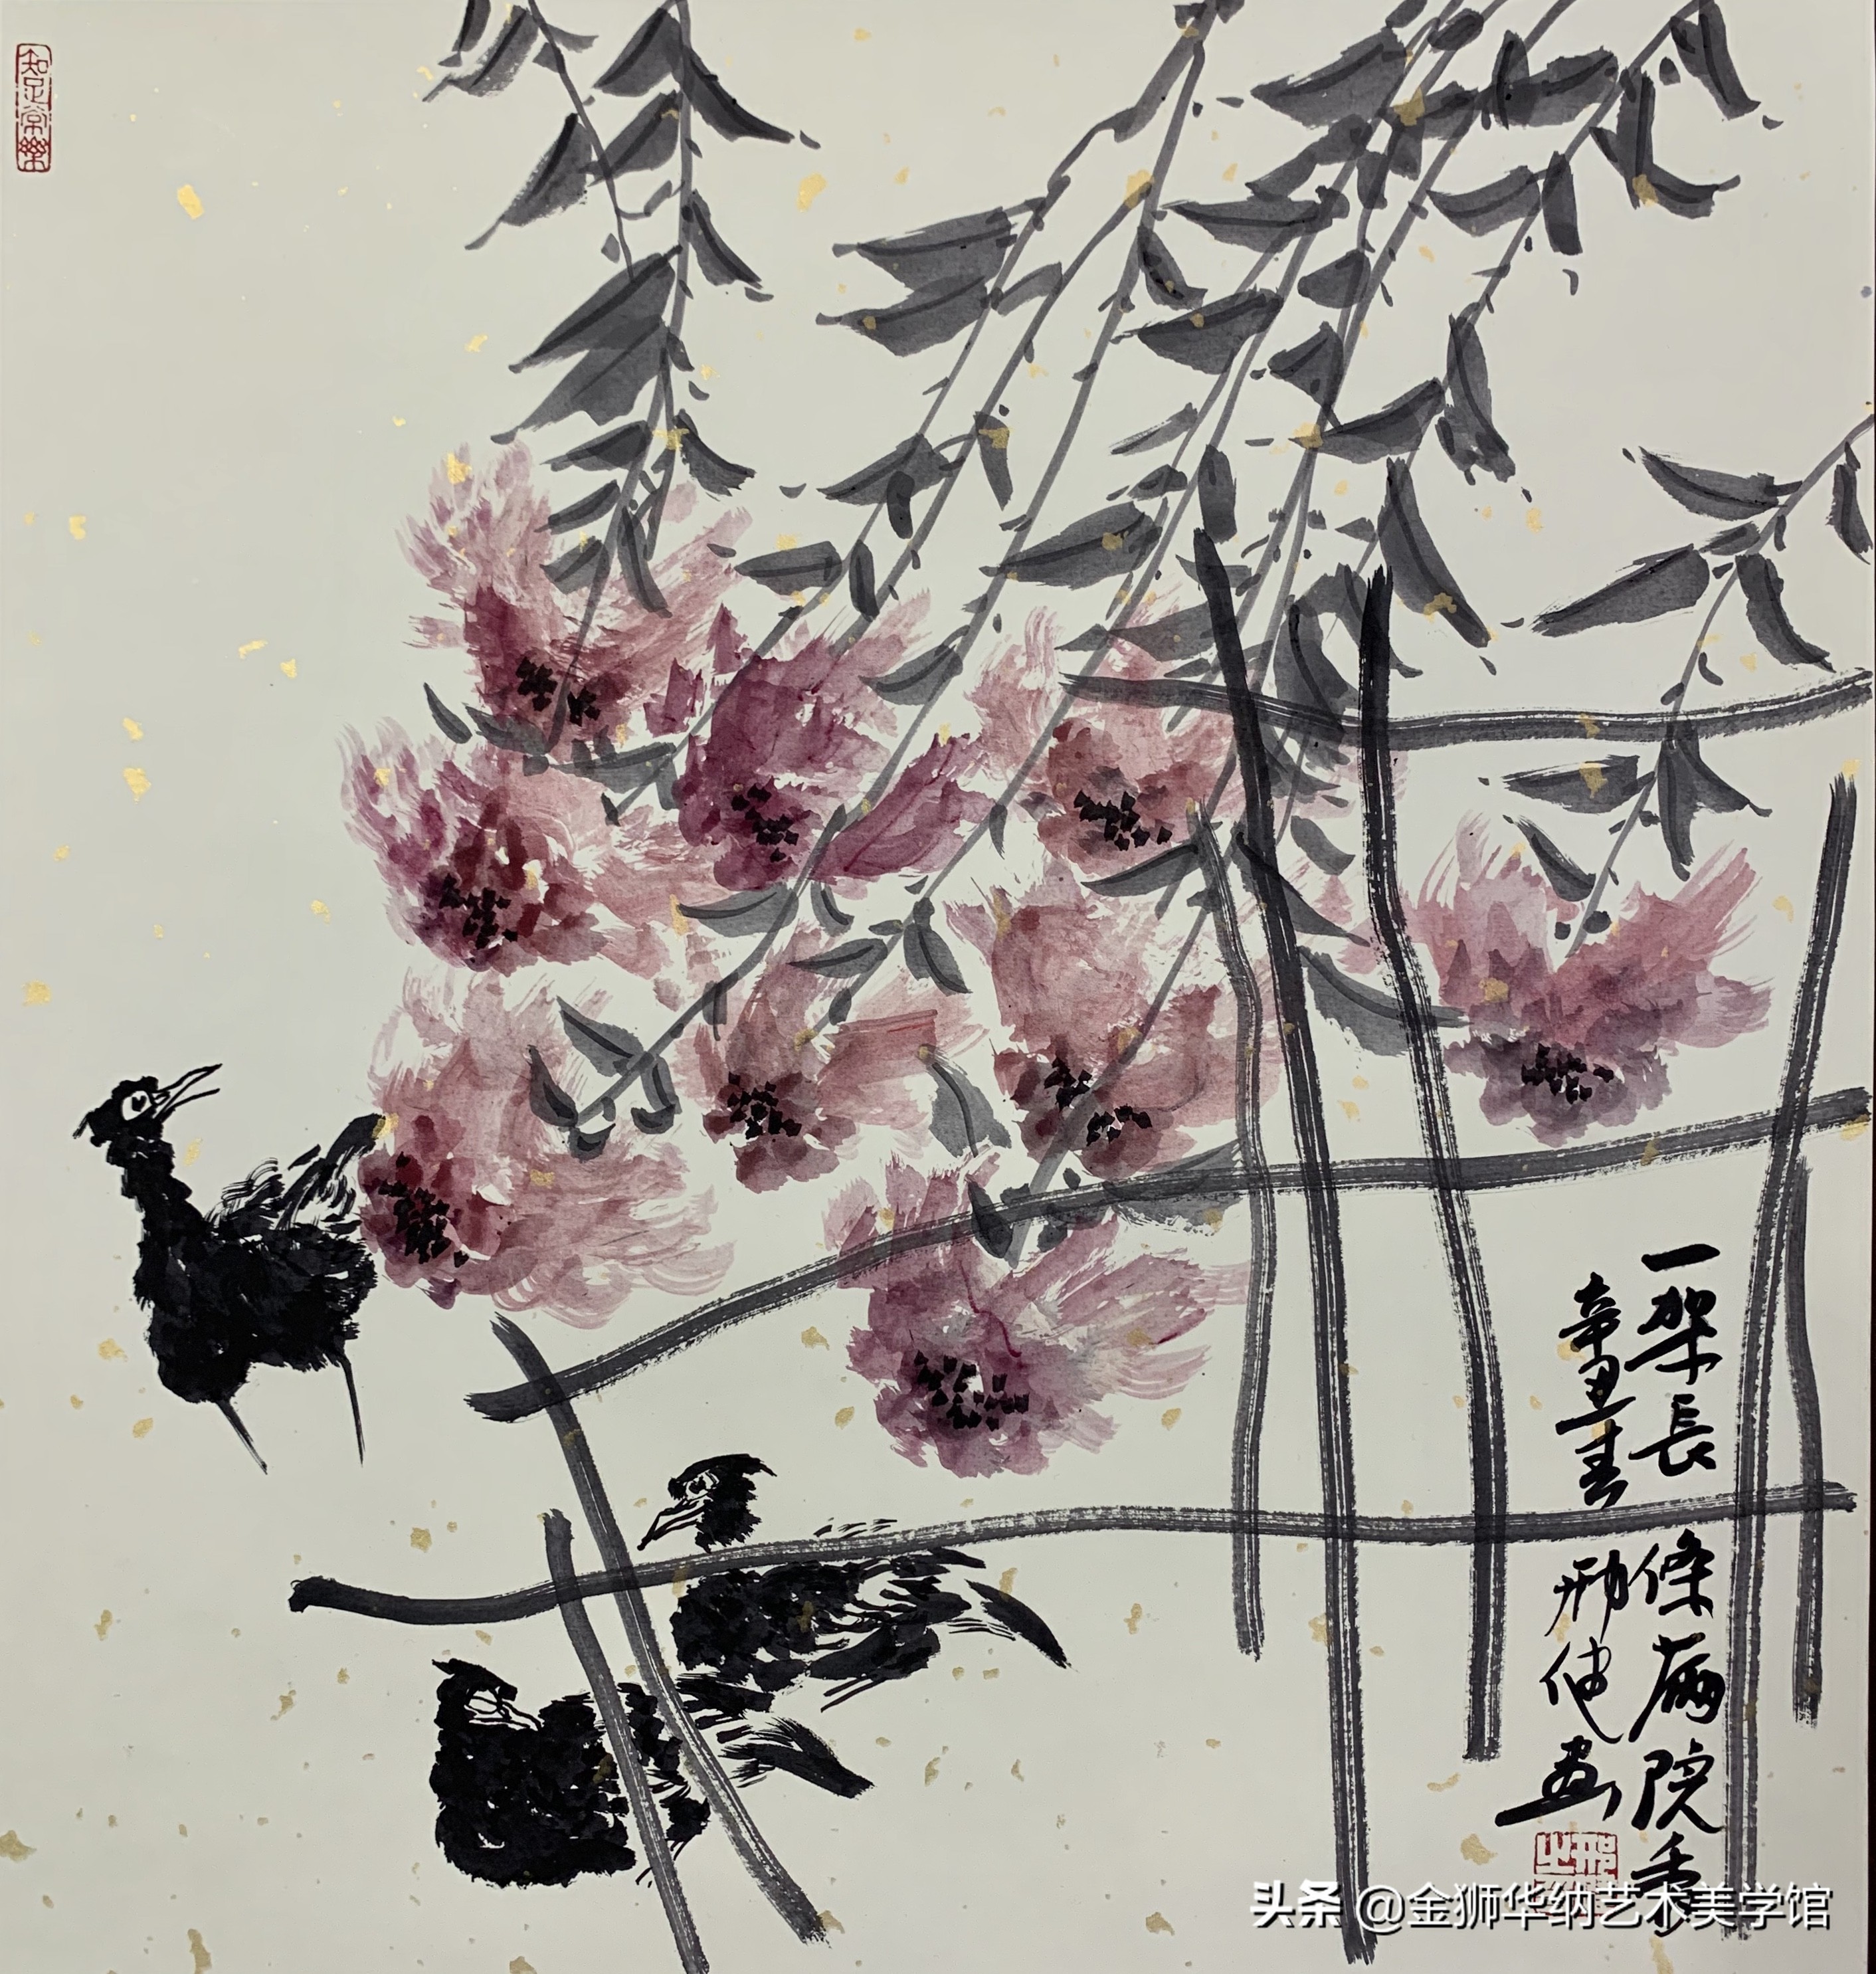 知足常樂
一架長條兩院
辛丑春 邢 画
头条 @金狮华纳艺术美学馆